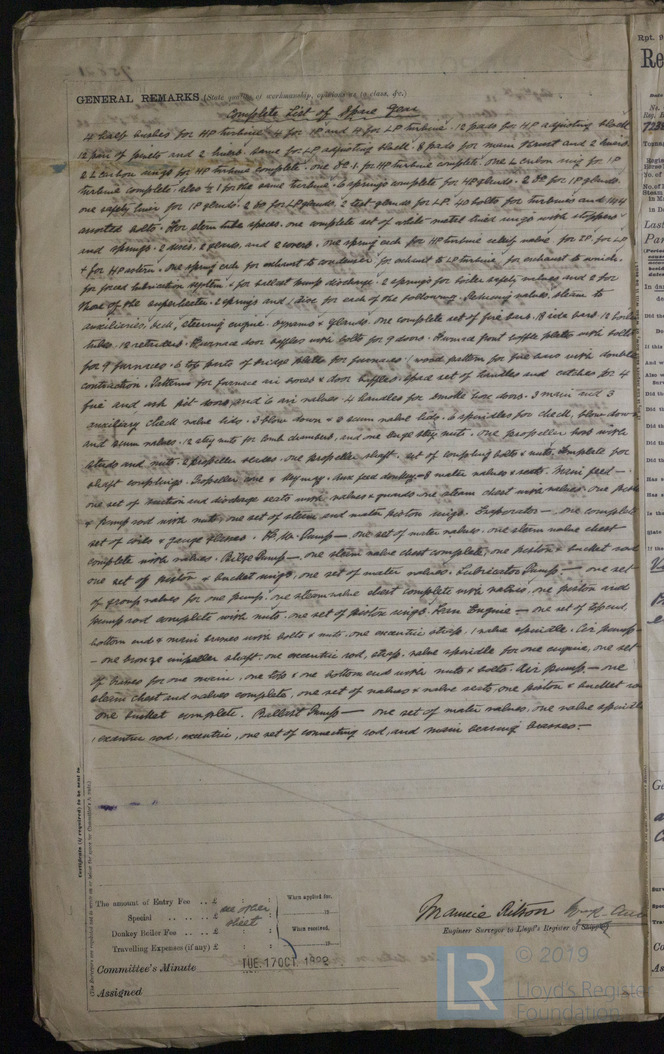 GENERAL REMARKS (State quality of workmanship, opinions as to class, &c.)
Complete List of Spare Gear
4 half bushes for HP turbine 4 for IP and 4 for LP turbine. 12 pads for HP adjusting block
12 pair of and 2 liners. Same for LP adjusting block. 8 pads for main thrust and 2 liners.
2 L carbon rings for HP turbine complete. one for HP turbine complete. one L carbon ring for IP
turbine complete also ½ for the same turbine. 6 springs complete for HP glands. 2 Do for IP glands.
one safety liner for IP glands. 2 Do for LP glands. 2 test glands for LP. 40 bolts for turbines and 144
assorted bolts. For stern tube spaces, one complete set of white metal lined rings with stoppers
and springs. 2 discs, 2 glands, and 2 covers. one spring each for HP turbine relief valve for IP for LP
& for HP astern. one spring each for exhaust to condenser, for exhaust to LP turbine, for exhaust to winch.
for forced lubrication system & for ballast pump discharge. 2 springs for boiler safety valves and 2 for
those of the superheater. 2 springs and 1 disc for each of the following. Reducing valves, steam to
auxiliaries, steering engine, dynamo & glands. one complete set of fire bars, 18 side bars, 12 boiler
tubes. 12 retarders. Furnace door baffles with bolts for 9 doors. Furnace front baffle plates with bolts
for 9 furnaces. 6 top parts of bridge plates for furnaces. 1 wood pattern for fire bars with double
contraction. Patterns for furnace air boxes & door baffles. Spare set of handles and catches for 4
fire and ash pit doors, and 6 air valves. 4 handles for smoke box doors. 3 main and 3
auxiliary check valve lids. 3 blow down & 3 scum valve lids. 6 spindles for check, blow down
and scum valves. 12 stay nuts for comb chambers, and one large stay nuts. one propeller boss with
studs and nuts. 2 propeller blades. one propeller shaft. set of coupling bolts & nuts, template for
shaft couplings. Propeller cone & keyway. Aux feed donkey 8 water valves & seats. Main feed —
one set of suction and discharge seats with valves & guards one steam chest with valves. one piston
& pump rod with nuts, one set of steam and water piston rings. Evaporator — one complete
set of coils & gauge glasses. F.W. Pump — one set of water valves. one steam valve chest
complete with valves. Bilge Pump — one steam valve chest complete, one piston & bucket rod
one set of piston & bucket rings, one set of water valves. Lubrication Pump — one set
of group valves for one pump, one steam valve chest complete with valves, one piston and
pump rod complete with nuts, one set of piston rings. Fan Engine — one set of top end,
bottom end & main brasses with bolts & nuts. one eccentric strap, 1 valve spindle. Cir Pump —
— one bronze impeller shaft, one eccentric rod, strap, valve spindle for one engine, one set
of brasses for one main, one top & one bottom end with nuts & bolts. Air Pump — one
steam chest and valves complete, one set of valves & valve seats, one piston & bucket rod
one bucket complete. Ballast Pump — one set of water valves, one valve spindle
1 eccentric rod, eccentric, one set of connecting rod, and main bearing brasses.
Certificate (if required) to be sent to
The amount of Entry Fee .. £ : :
Special .. .. .. .. £ : :
Donkey Boiler Fee .. .. £ : :
Travelling Expenses (if any) £ : :
see other
sheet
When applied for,
19
When received,
19
Maurice Ritson
Engineer Surveyor to Lloyd's Register of Shipping
Committee's Minute TUE. 17 OCT. 1922
Assigned
Rpt. 9
Re
LR
© 2019
Lloyd's Register
Foundation